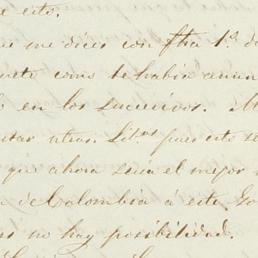 e esto.
ue me dices con fha 1º. d
uete como te habia anun
o en los sucesivos. M
tar otras Libras pues esto se
que ahora seria el mejor
a de Colombia á este Go
as no hay posibilidad.